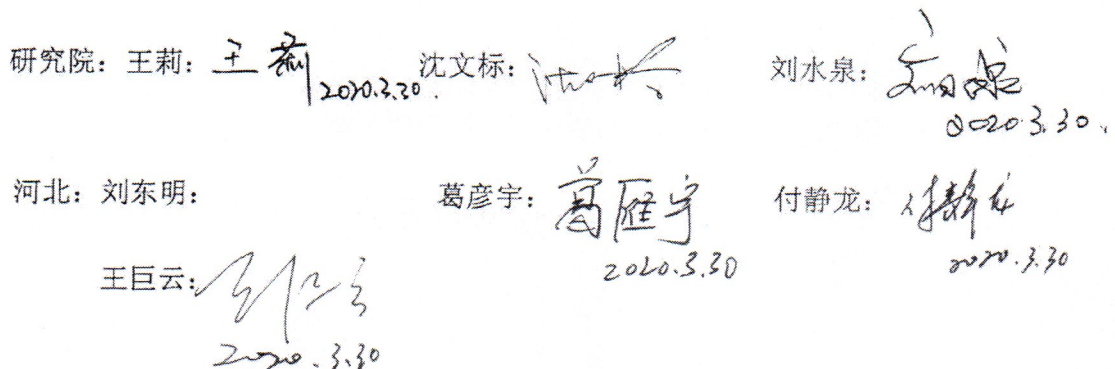 研究院：王莉：王莉 2020.3.30. 沈文标： 刘水泉： 2020.3.30.
河北：刘东明： 葛彦宇：葛雁宇 2020.3.30 付静龙：付静龙 2020.3.30
王巨云： 2020.3.30